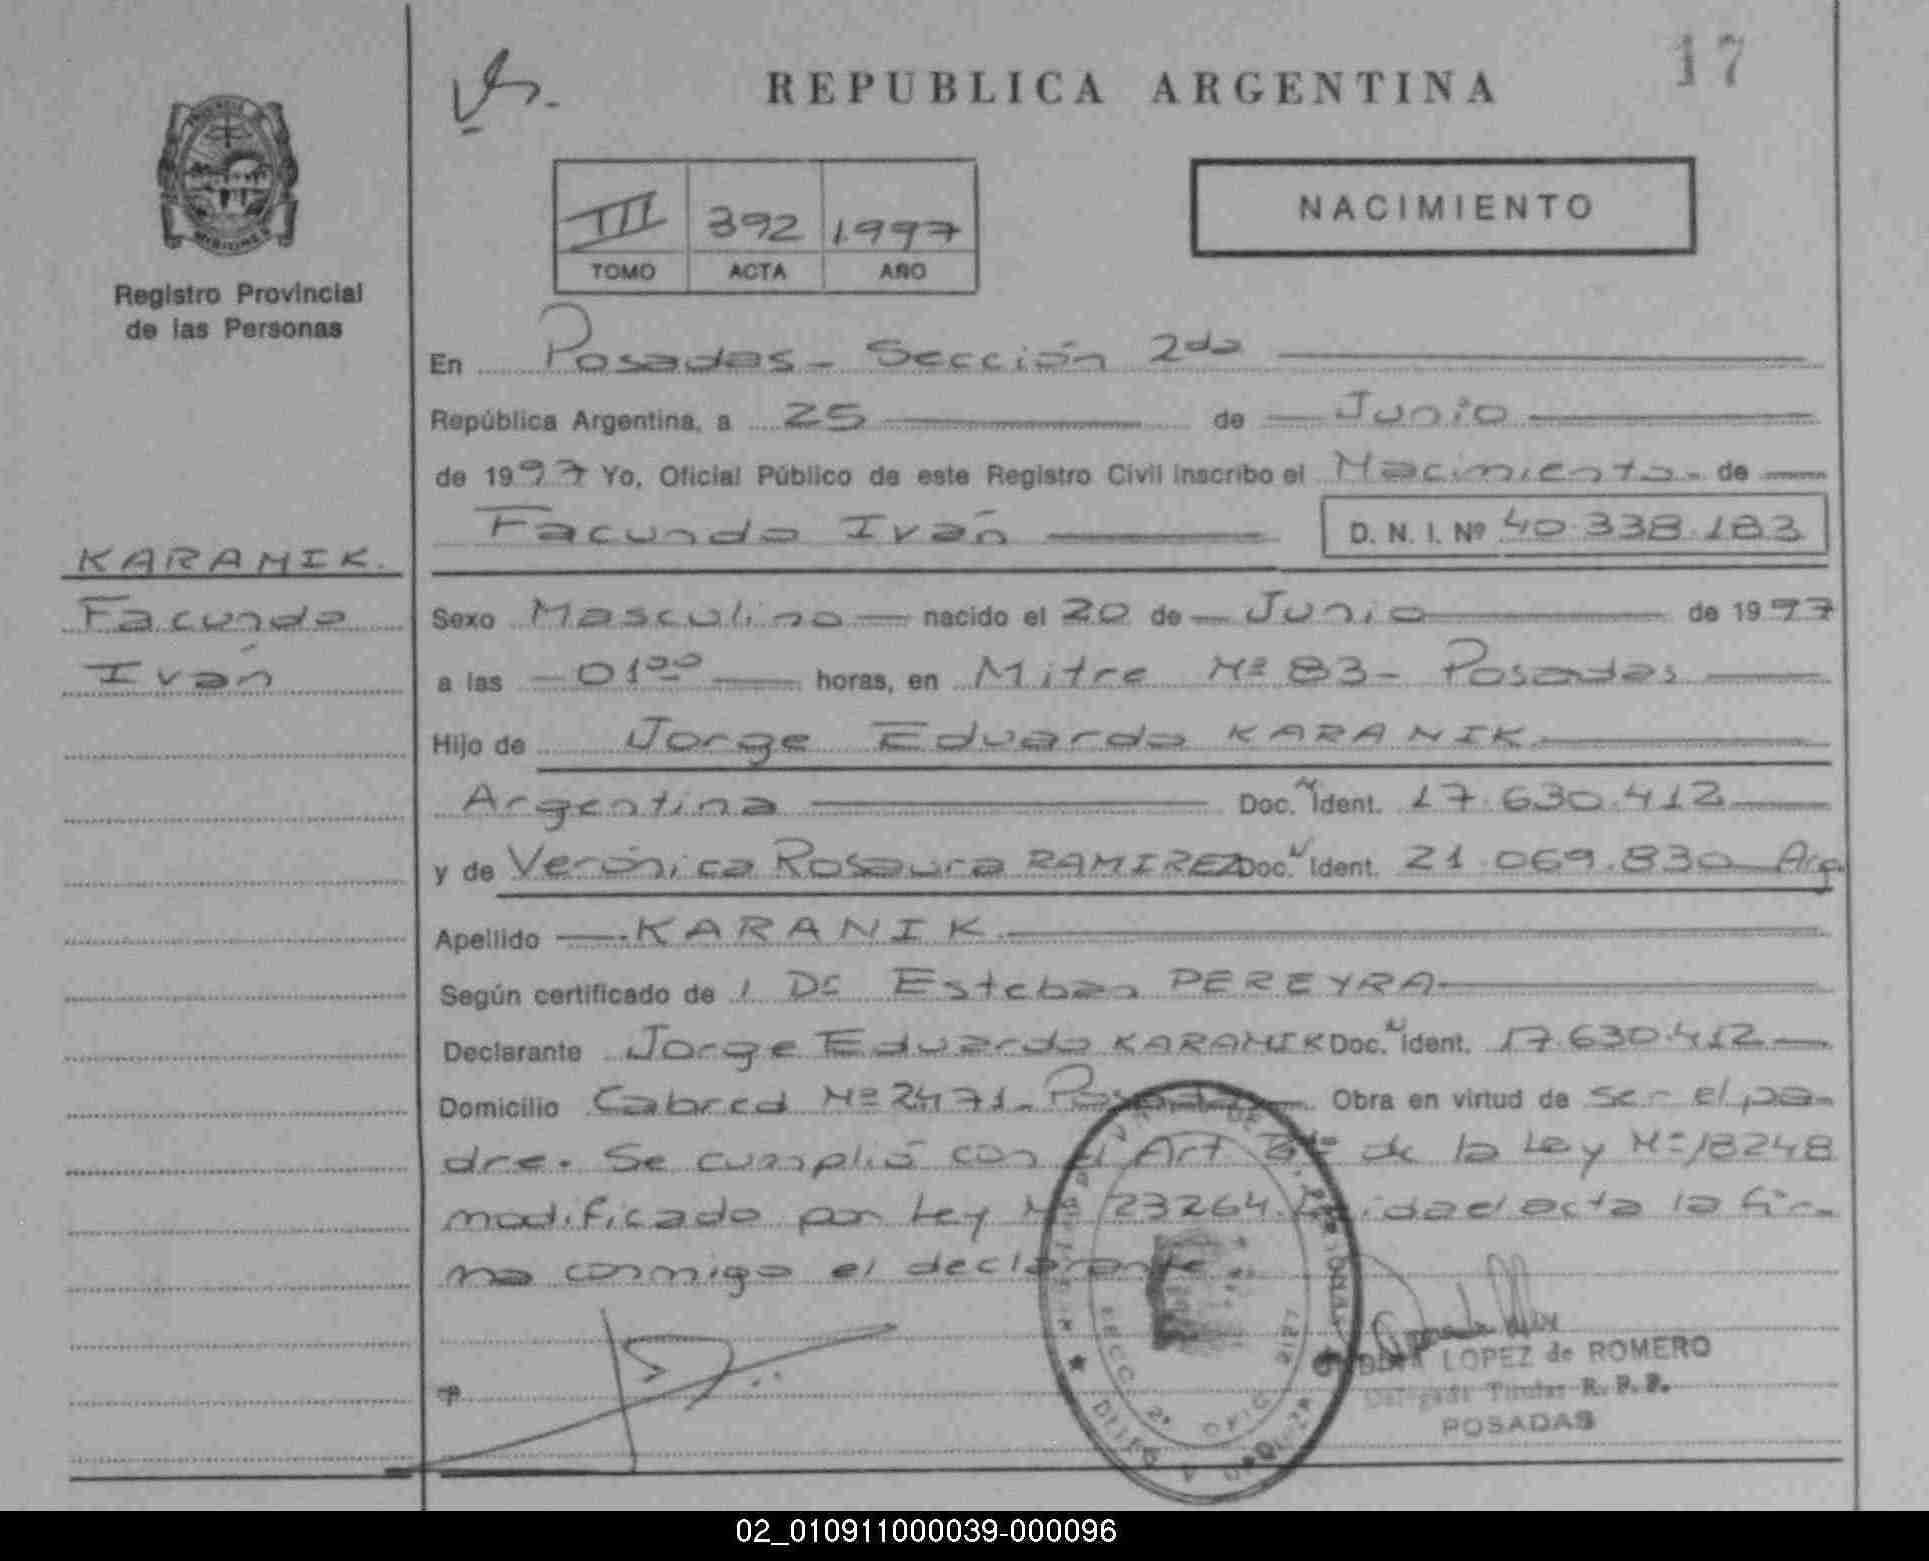 17
REPUBLICA ARGENTINA
MISIONES
Registro Provincial
de las Personas
III 392 1.997
TOMO ACTA AÑO
NACIMIENTO
En Posadas - Sección 2da
República Argentina, a 25 de Junio
de 1997 Yo, Oficial Público de este Registro Civil inscribo el Nacimiento - de
Facundo Iván D. N. I. Nº 40.338.183
KARANIK.
Facundo
Iván
Sexo Masculino nacido el 20 de Junio de 1997
a las 01⁰⁰ horas, en Mitre Nº 83 - Posadas
Hijo de Jorge Eduardo KARANIK
Argentina Doc. N Ident. 17.630.412
y de Verónica Rosaura RAMIREZ Doc. N Ident. 21.069.830 Arg.
Apellido KARANIK
Según certificado de Dr Esteban PEREYRA
Declarante Jorge Eduardo KARANIK Doc. N Ident. 17.630.412
Domicilio Cabred Nº 2471 - Posadas Obra en virtud de ser el pa-
dre. Se cumplió con el Art de la Ley Nº 18248
modificado por Ley Nº 23264. Leída el acta la fir-
ma conmigo el declarante
LOPEZ de ROMERO
Delegada Titular R. P. P.
POSADAS
SECC 2ª OFIC
02_010911000039-000096